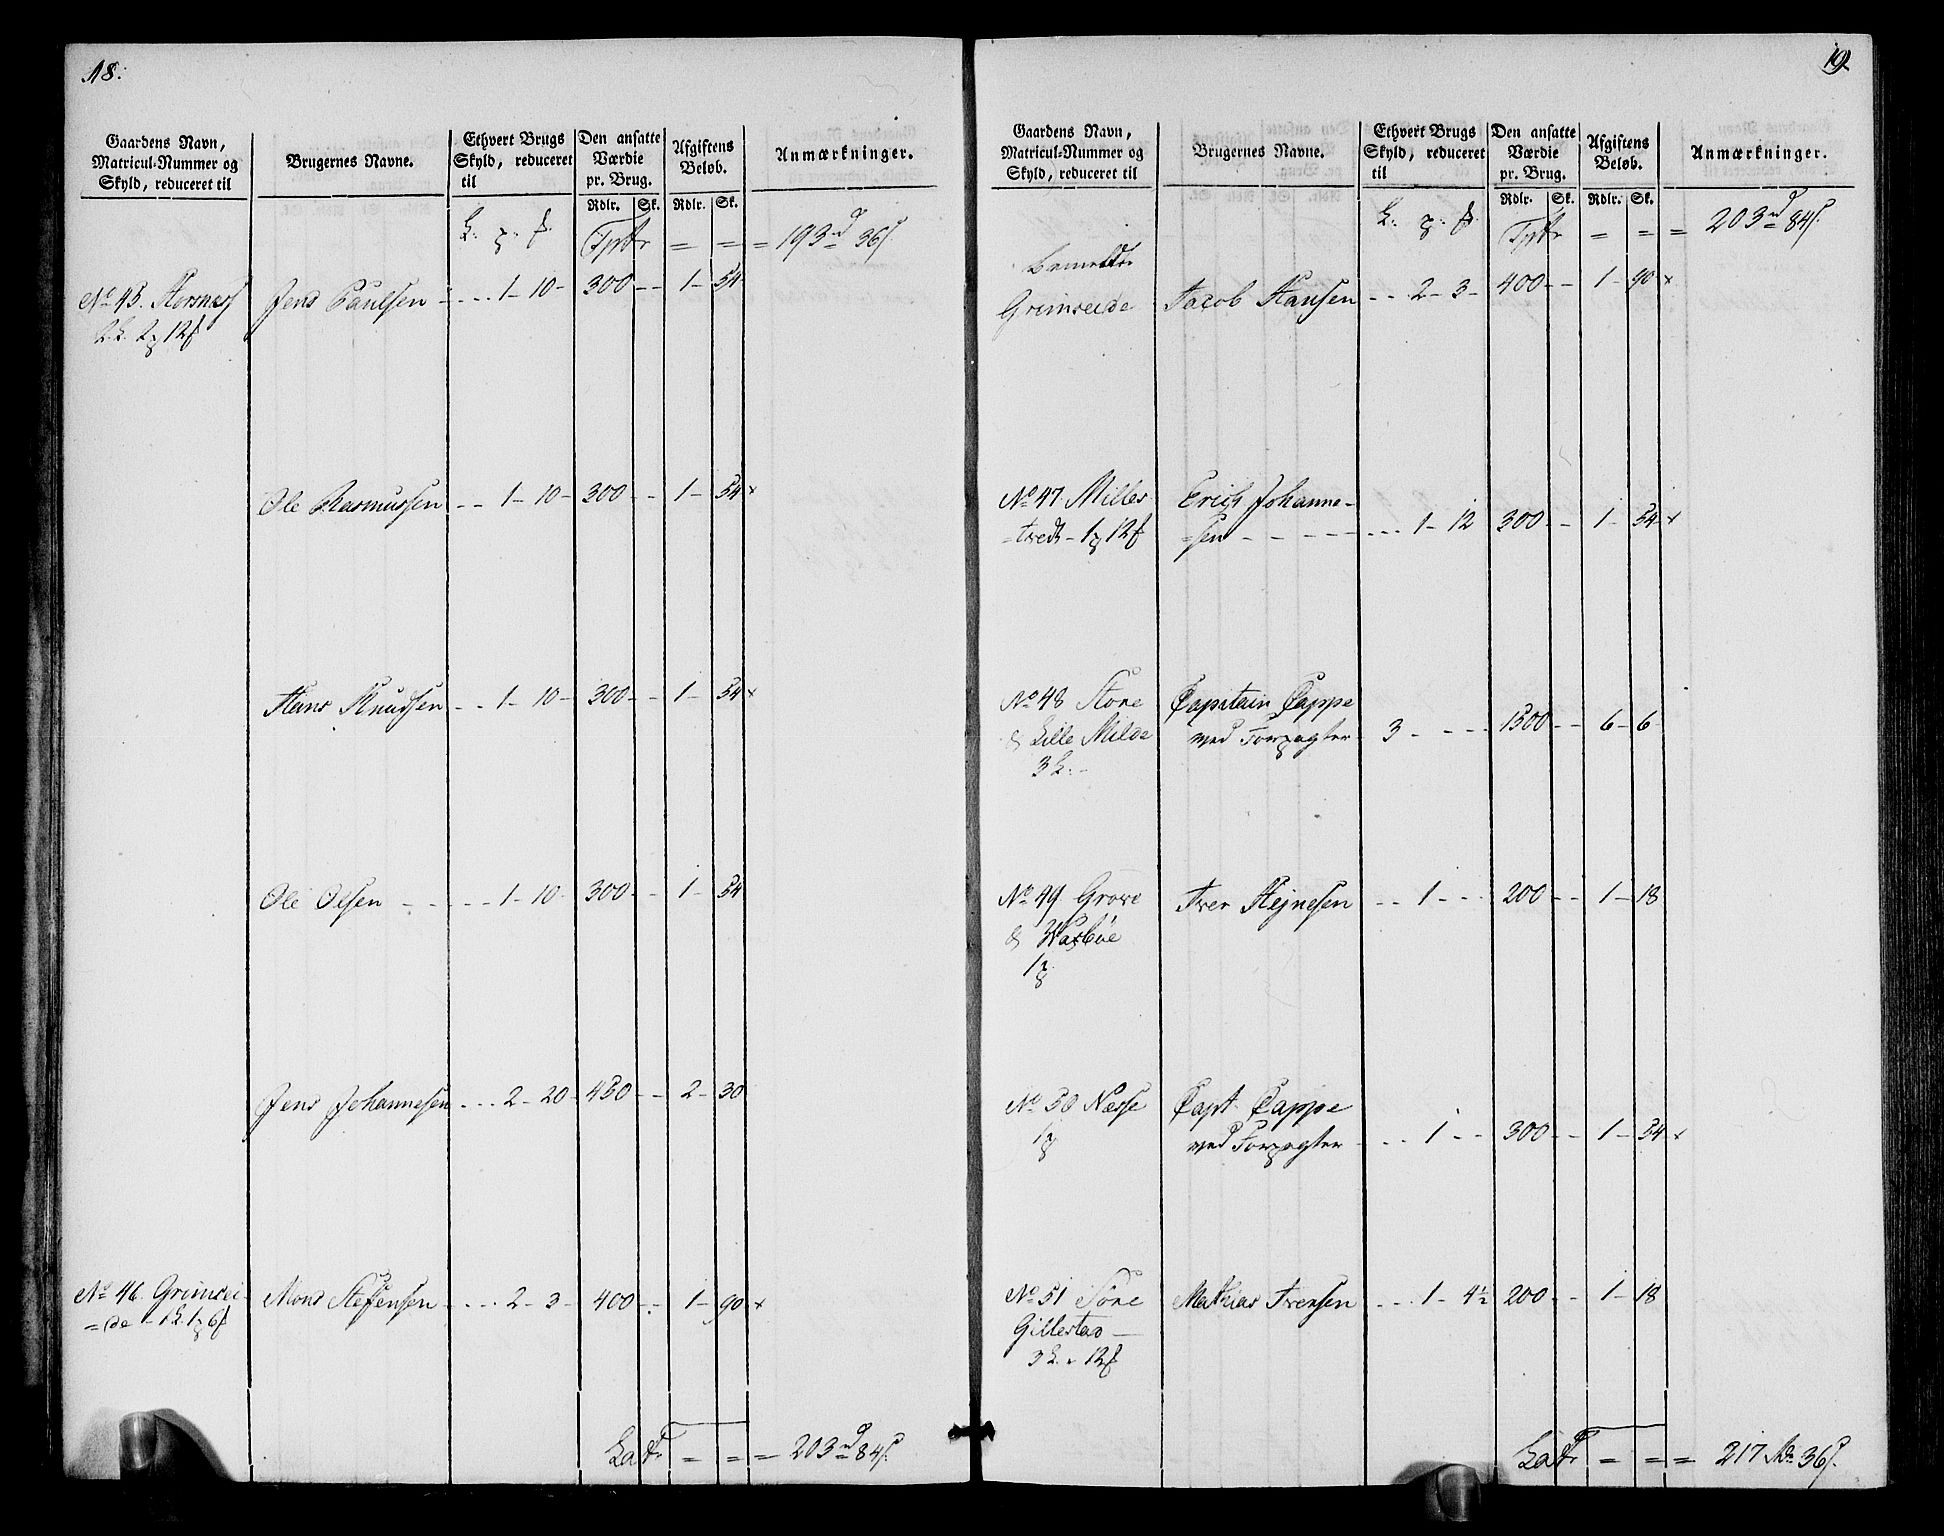 18.
Gaardens Navn, Matricul-Nummer og Skyld, reduceret til
Brugernes Navne.
Ethvert Brugs Skyld, reduceret til
Den ansatte Værdie pr. Brug.
Afgiftens Beløb.
Anmærkninger.
Rdlr. Sk. Rdlr. Sk.
Tptr = = = 193 rd 36 s.
No 45. Horsnæs Jens Paulsen - - - 1 - 10 - 300 - - 1 - 54
Ole Rasmussen - - 1 - 10 - 300 - - 1 - 54 x
Hans Knudsen - - 1 - 10 - 300 - - 1 - 54 x
Ole Olsen - - - - - 1 - 10 - 300 - - 1 - 54
Jens Johannesen - - - 2 - 20 - 450 - - 2 - 30
No 46. Grimsei- Mons Steffensen - - - 2 - 3 - 400 - - 1 - 90 x
=de - 1
Latr = = = 203 rd 84 s.
19
Gaardens Navn, Matricul-Nummer og Skyld, reduceret til
Brugernes Navne.
Ethvert Brugs Skyld, reduceret til
Den ansatte Værdie pr. Brug.
Afgiftens Beløb.
Anmærkninger.
Rdlr. Sk. Rdlr. Sk.
Tptr = = = 203 rd 84 s.
Grimseide Jacob Hansen - - 2 - 3 - 400 - - 1 - 90 x
No 47. Milles Erich Johanne-
=tvedt - =sen - - - - - - - 1 - 12 300 - - 1 - 54 x
No 48 Store Capitain Cappe
& Lille Milde ved Forpagter 3 - - - - 1500 - - 6 - 6
3
No 49. Grove Iver Stejnesen - - 1 - - - 200 - - 1 - 18
&
1
No 50 Næsse Capt. Cappe
1 ved Forpagter - - - 1 - - 300 - - 1 - 54 x
No 51 Søre Mathias Iversen - - - 1 - 4½ 200 - - 1 - 18
Gillestad
3
Latr = = = 217 36 s.